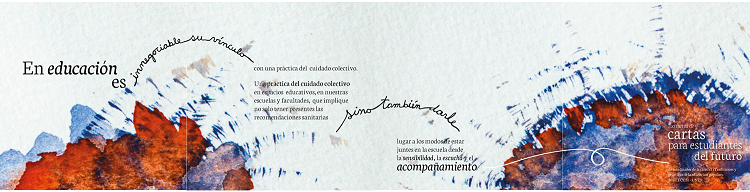 En educación
es
innegociable su vínculo
con una práctica del cuidado colectivo.
Una práctica del cuidado colectivo
en espacios educativos, en nuestras
escuelas y facultades, que implique
no solo tener presentes las
recomendaciones sanitarias
sino también darle
lugar a los modos de estar
juntes en la escuela desde
la sensibilidad, la escucha y el
acompañamiento
cartas
para estudiantes
del futuro